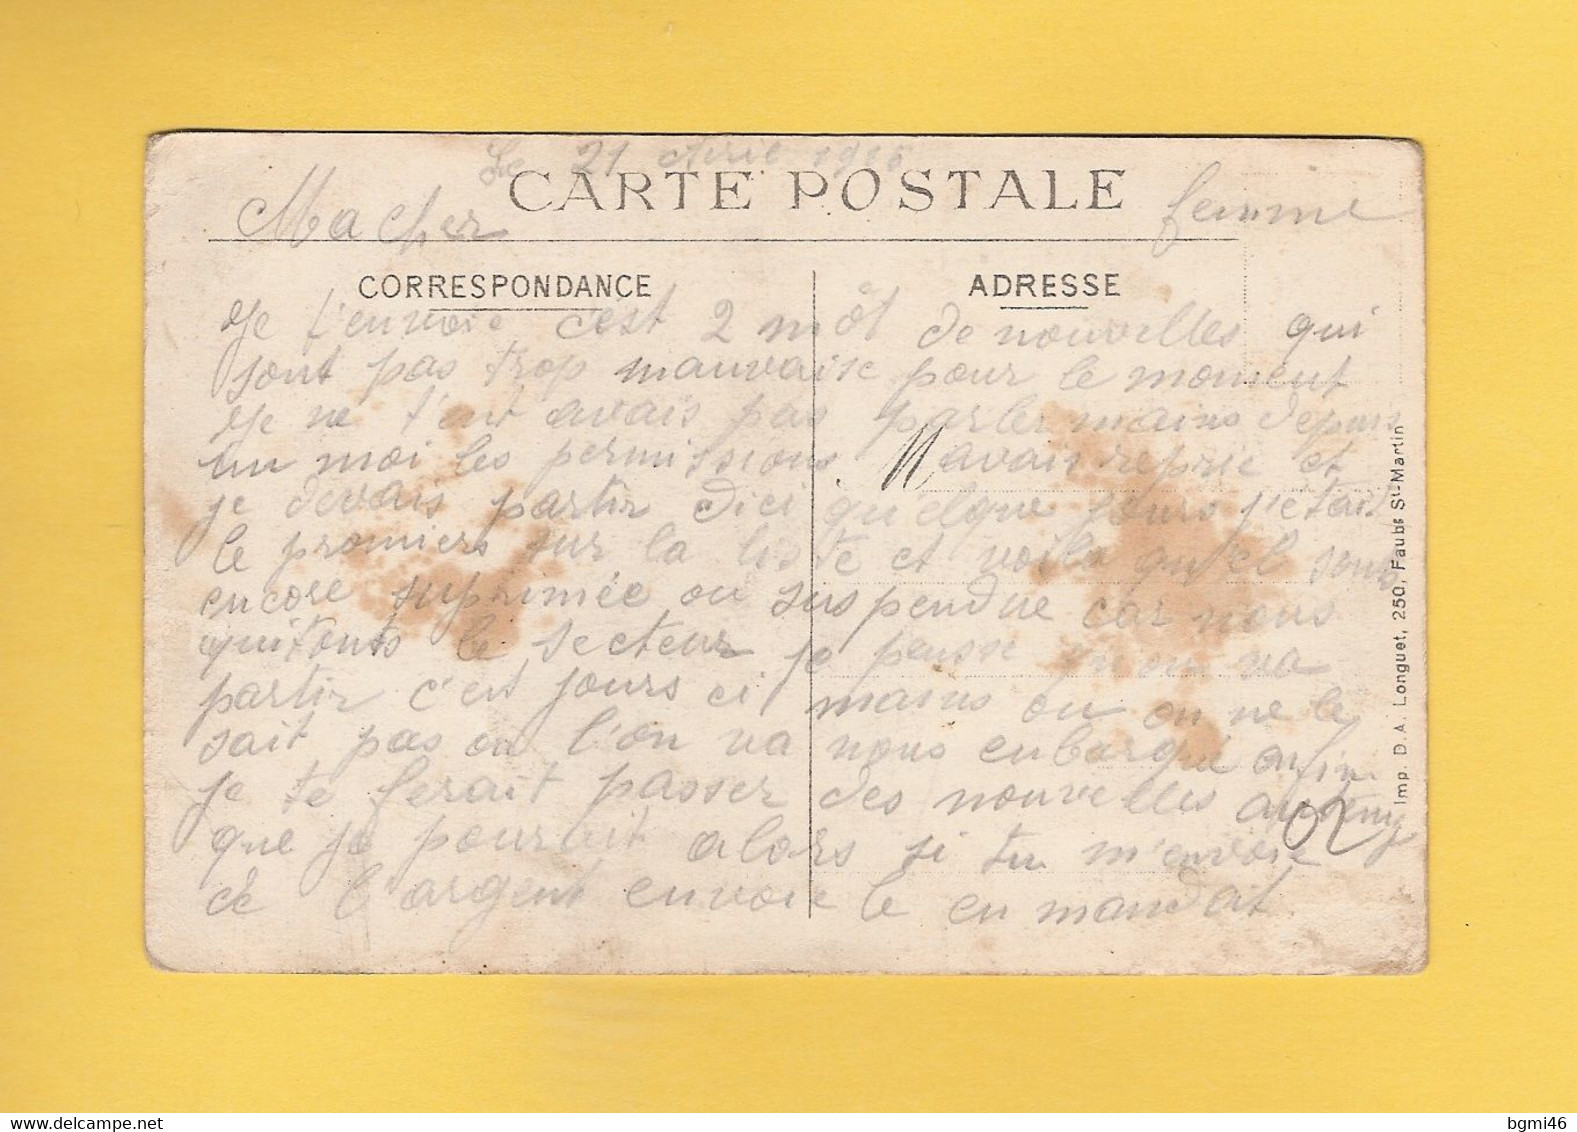 Le 21 Avril 1916
CARTE POSTALE
Ma Cher femme
CORRESPONDANCE
ADRESSE
Je t'envoie c'est 2 môt de nouvelles qui
sont pas trop mauvaise pour le moment
Je ne t'ent avais pas parler mains depuis
un moi les permissions avais reprie et
je devais partir dici quelque jours j'était
le promiers sur la liste et voila qu'el sont
encore suprimée ou suspendue car nous
quittons le secteur je pensse qu'on va
partir c'est jours ci mains ou on ne le
sait pas ou l'on va nous enbarqué enfin
je te ferait passer des nouvelles autemp
que je pourait alors si tu m'envoie
dé l'argent envoie le en mandait
02
Imp. D.A. Longuet, 250, Faubg St-Martin
www.delcampe.net
bgmi46